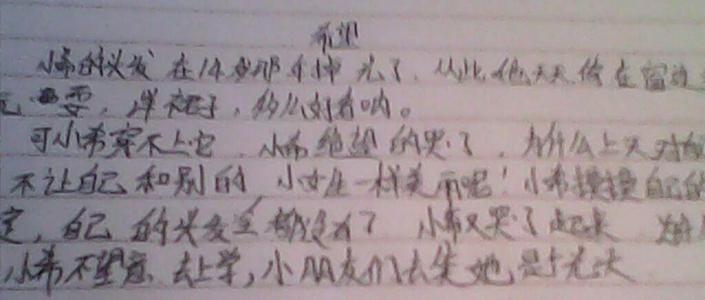 希望
小希的头发在14岁那年掉光了,从此他天天倚在窗边
要,洋裙子,多么好看呐。
可小希穿不上它,小希绝望的哭了,为什么上天对
不让自己和别的小女生一样美丽呢!小希摸摸自己的
自己的头发全都没有了 小希又哭了起来
小希不愿意去上学,小朋友们去笑她是个光头